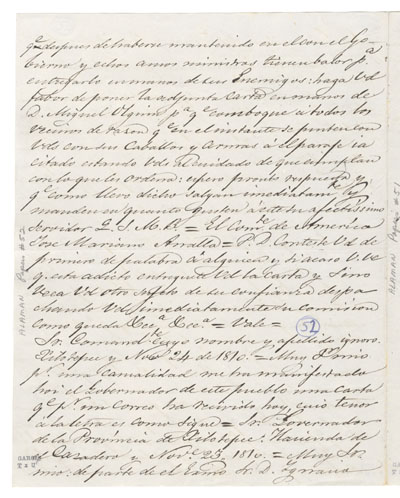 q.e despues de haberse mantenido en el con el Go-
bierno y echos amos ministros tienen balor p.a
entregarlo en manos de sus Enemigos: haga Vd
favor de poner la adjunta Carta en manos de
D. Miguel p.a q.e comboque á todos los
vecinos de razon q.e en el instante se junten con
Vds con sus Caballos y Armas á el paraje ia
citado estando Vds al cuidado de que cumplan
con lo que les ordena: espero pronta respuesta y
q.e como llevo dicho salgan imediatam.te y
manden en quanto gusten á este su afectisimo
servidor Q. S. M. B. = El Com.te de America
José Mariano = P. D. Conteste Vd de
primero de palabra á alguien y si acaso
q. esta adicto entreguele Vd la Carta y Sino
vea Vd otro sujeto de su confianza despa
chando Vd imediatamente su comision
como queda Dec.a Dec.a = Vale =
Sr. Comand.te cuyo nombre y apellido ignoro.
Jilotepec y Nov.e 24 de 1810. = Muy S.or mio
p.r una casualidad me ha manifestado
hoi el Gobernador de este pueblo una Carta
q.e p.r un Correo ha recivido hoy, cuio tenor
a la letra es como sigue = Sr. Governador
de la Provincia de Gilotepec. Hacienda de
el Cazadero y Nov.e 23, 1810. = Muy Sr
mio: de parte de el Exmo Sr. D. Ignacio
52
ALAMAN Papers #52
ALAMAN Papers #51
GARCIA
T x U